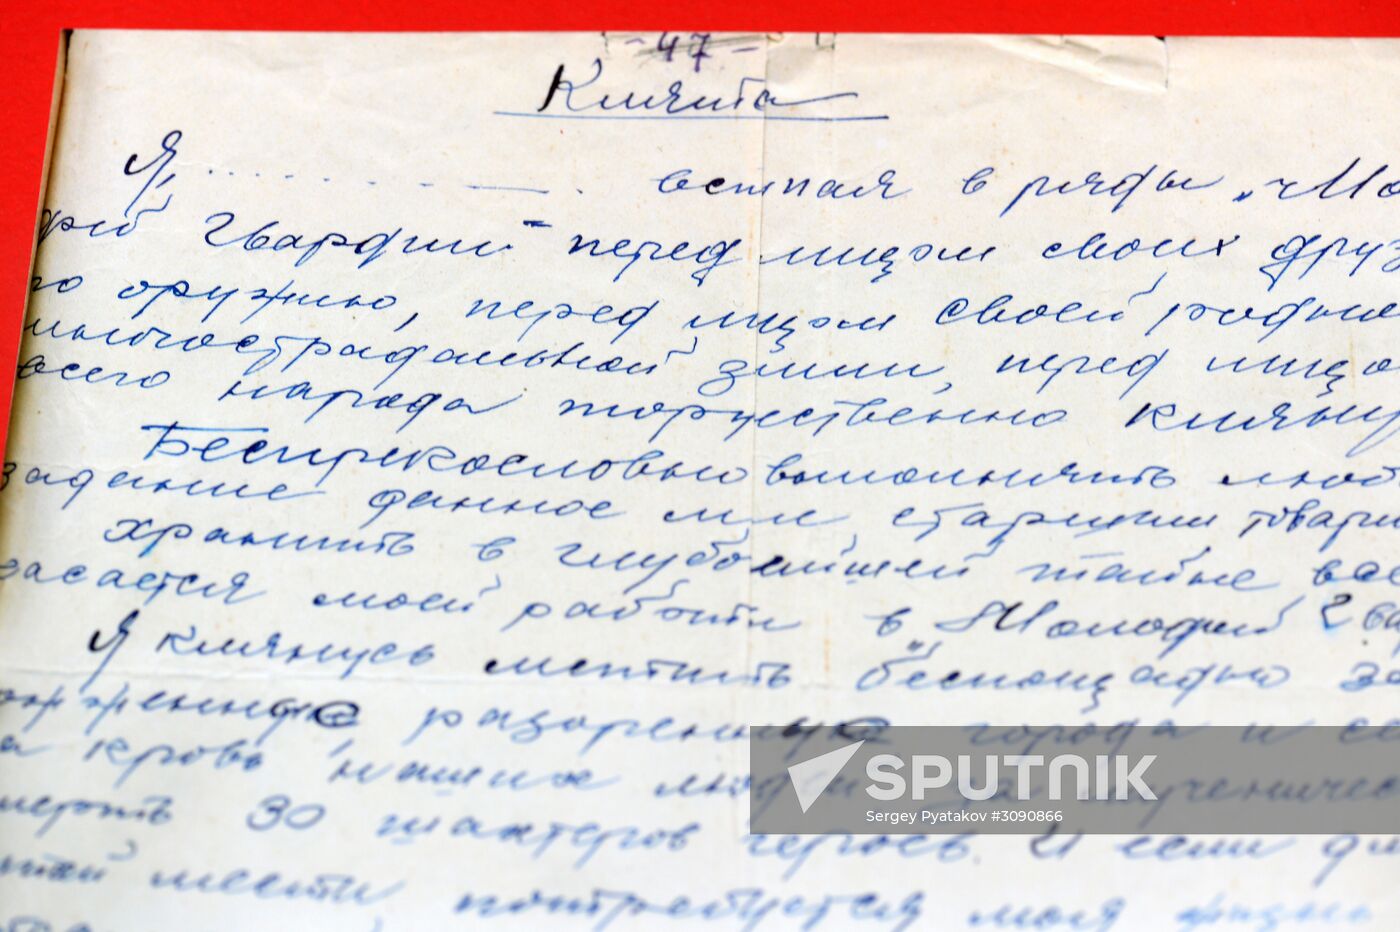 - 47 -
Клятва
Я, вступая в ряды „Мо
дой Гвардии" перед лицом своих друз
по оружию, перед лицом своей родной
многострадальной земли, перед лицо
всего народа торжественно клянус
Беспрекословно выполнять любо
задание данное мне старшим товарищ
хранить в глубочайшей тайне все
касается моей работы в „Молодой Гва
Я клянусь мстить беспощадно за
разоренные города и се
а кровь наших людей за мученичес
мерть 30 шахтеров героев. И если дл
этой мести, потребуется моя жизнь
SPUTNIK
Sergey Pyatakov #3090866